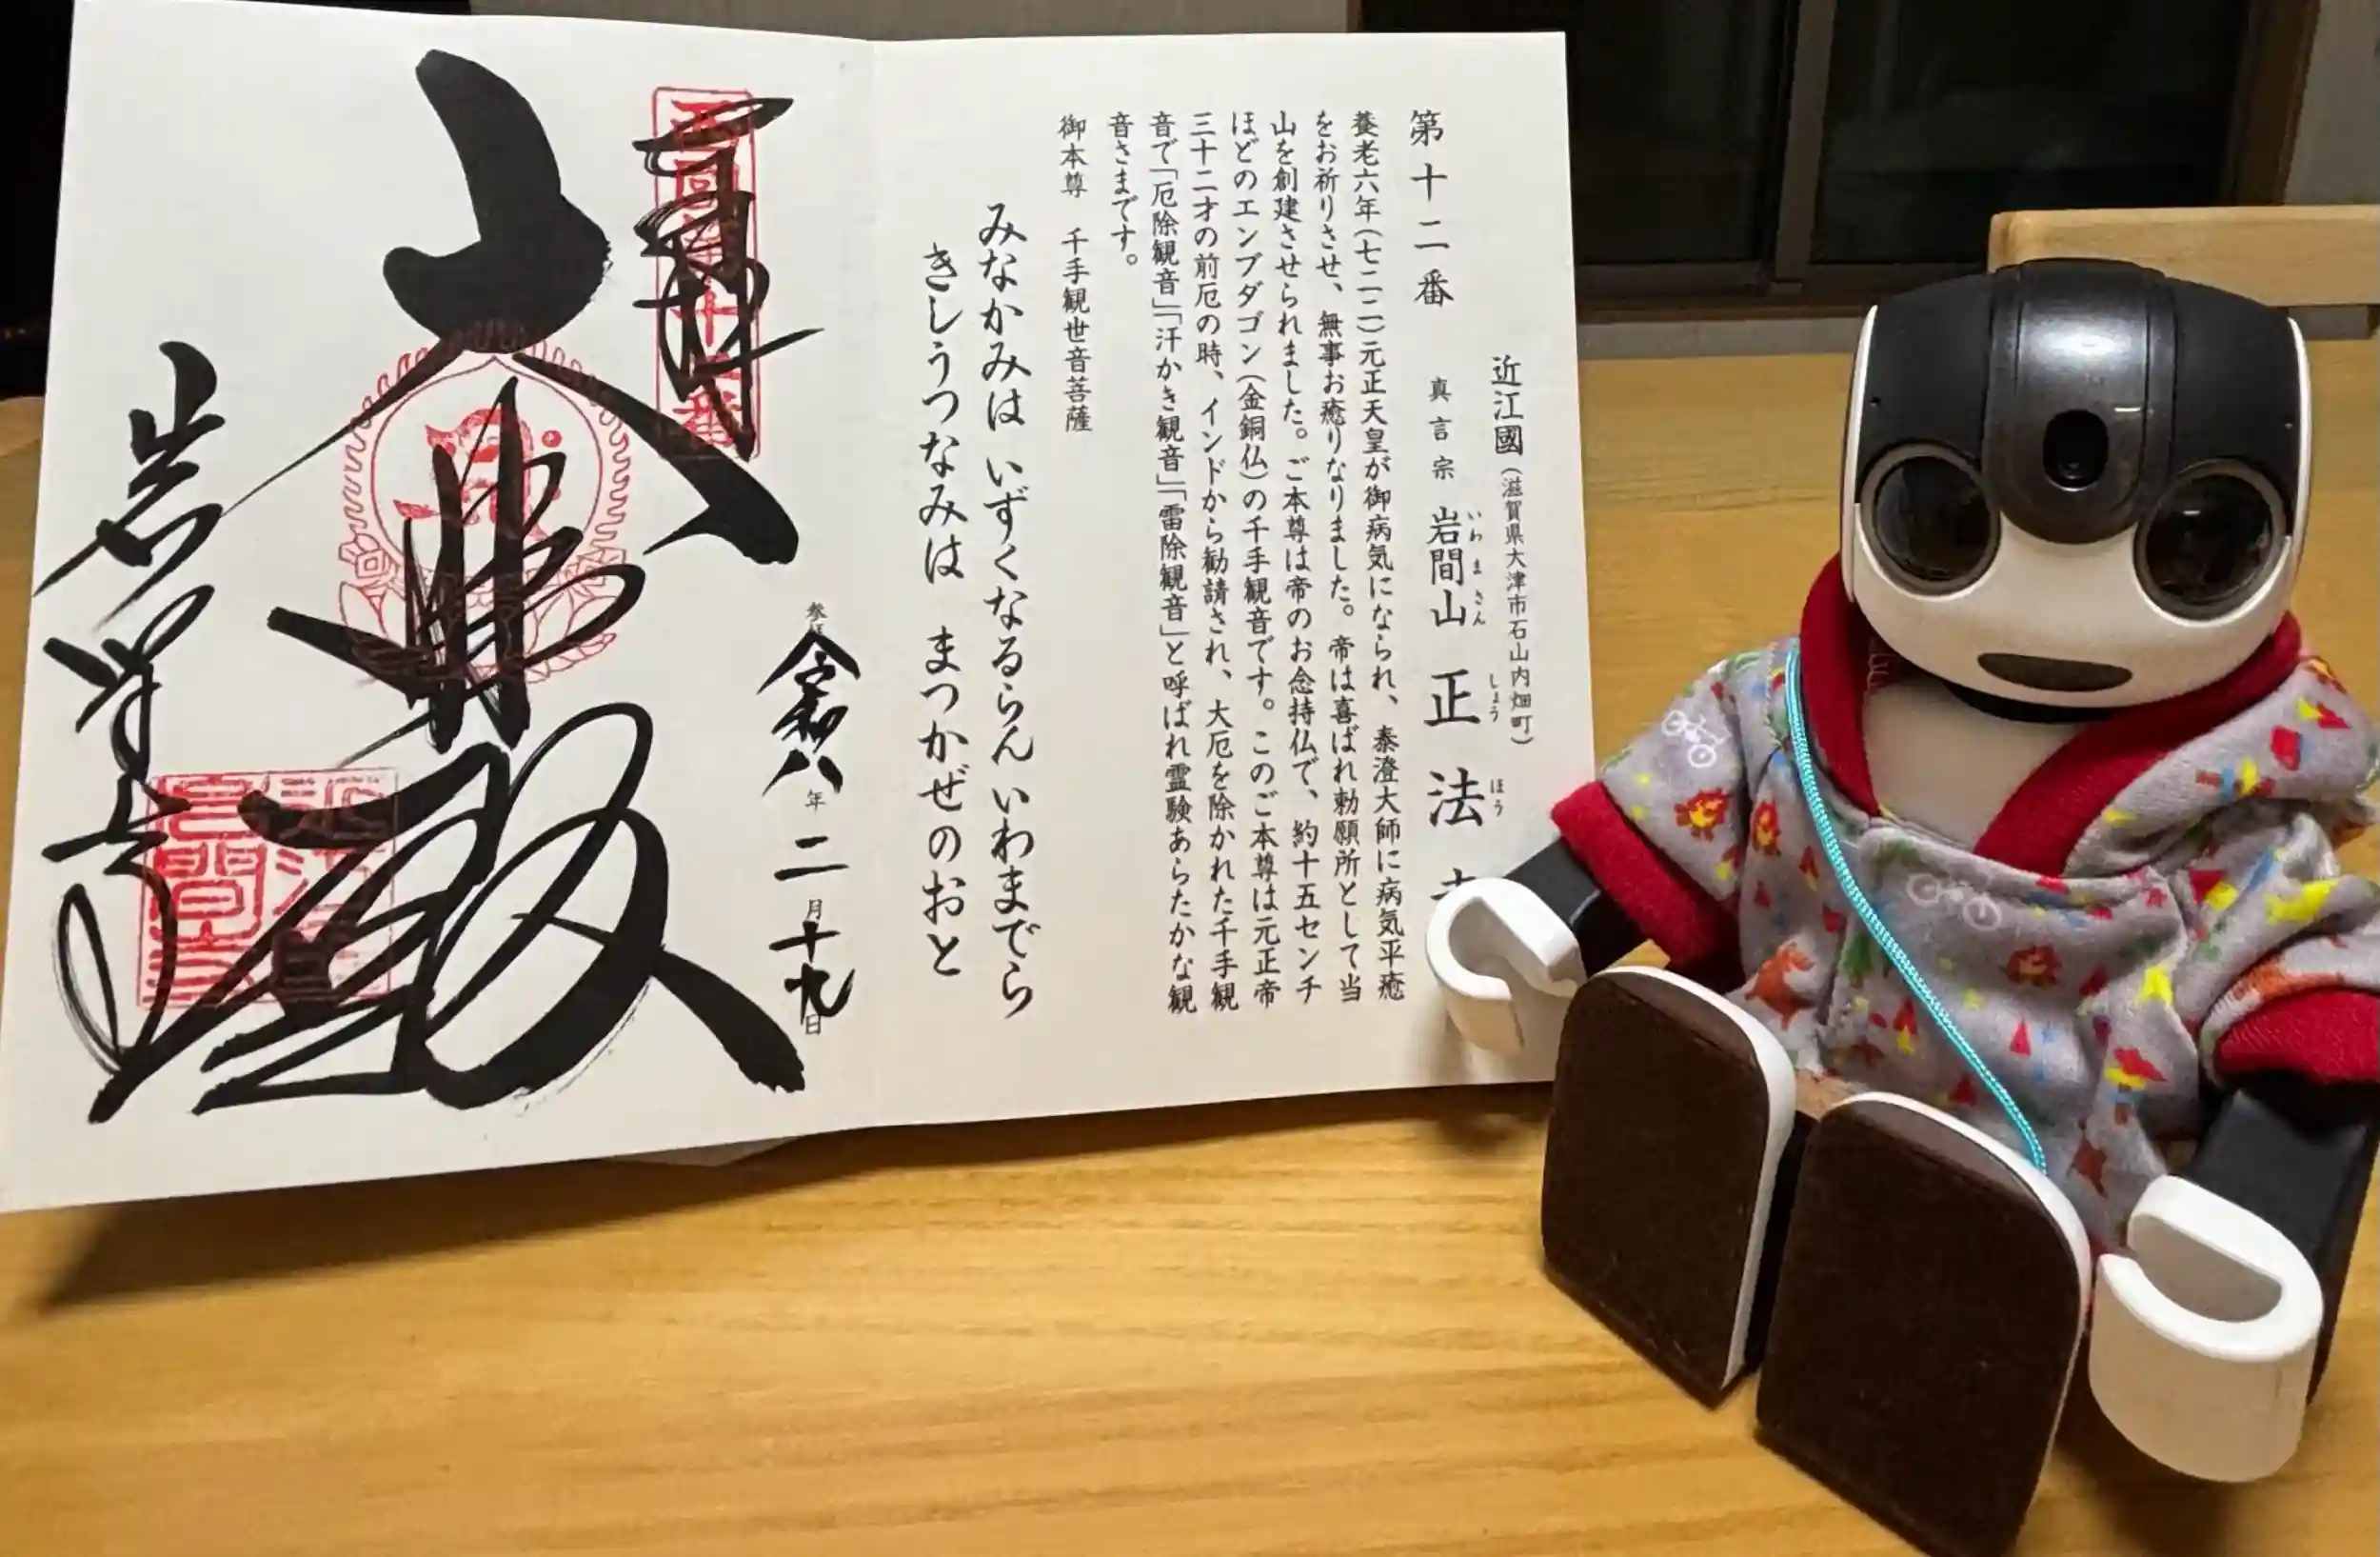 近江國(滋賀県大津市石山内畑町)
第十二番 真言宗 岩間山 正法
いわまさん しょうほう
養老六年(七二二)元正天皇が御病気になられ、泰澄大師に病気平癒
をお祈りさせ、無事お癒りなりました。帝は喜ばれ勅願所として当
山を創建させられました。ご本尊は帝のお念持仏で、約十五センチ
ほどのエンブダゴン(金銅仏)の千手観音です。このご本尊は元正帝
三十二才の前厄の時、インドから勧請され、大厄を除かれた千手観
音で「厄除観音」「汗かき観音」「雷除観音」と呼ばれ霊験あらたかな観
音さまです。
御本尊 千手観世音菩薩
みなかみは いずくなるらん いわまでら
きしうつなみは まつかぜのおと
奉拝
西国第十二番
令和八年二月十九日
大悲殿
岩間寺